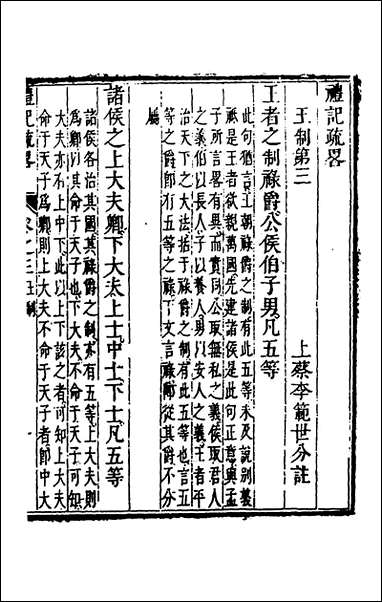 禮記疏畧
王制第三
上蔡李範世分註
王者之制祿爵公侯伯子男凡五等
此句猶言王朝祿爵之制有此五等未及說别義
祗是王者欲親萬國先建諸侯是此句正意與孟
子所言畧有異而實同公取無私之義侯取君人
之義伯以長人子以養人男以安人之義王者平
治天下之大法括于祿爵之制有此五等也言五
等之爵卽有五等之祿下文言祿卽從其爵不分
屬
諸侯之上大夫卿下大夫上士中士下士凡五等
諸侯各治其國其祿爵之制亦有五等上大夫則
爲卿以其命于天子也下大夫不命于天子可知
大夫亦有上中下此以上下該之者可知上大夫
命于天子爲卿則上大夫不命于天子者卽中大
禮記疏畧
卷之三王制